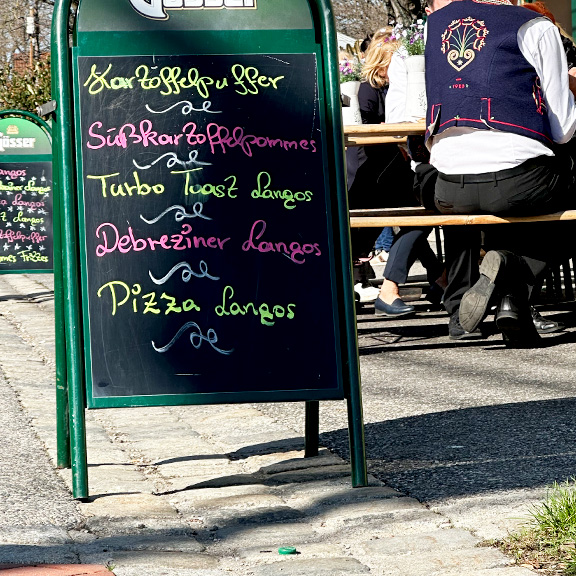 Gösser
Kartoffelpuffer
Süßkartoffelpommes
Turbo Toast Langos
Debreziner Langos
Pizza Langos
Gösser
Langos